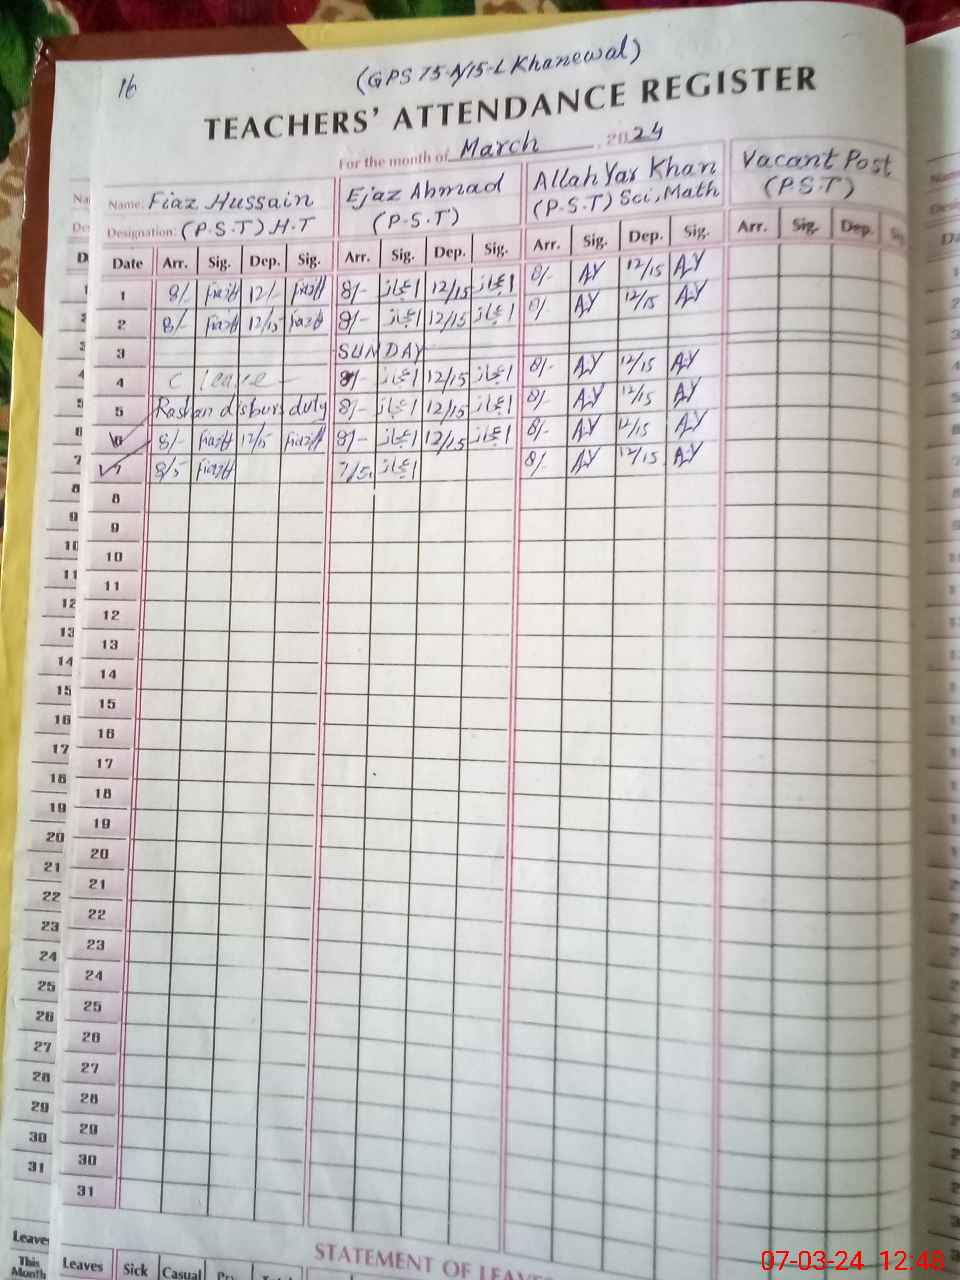 16
(GPS 75-N/15-L Khanewal)
TEACHERS' ATTENDANCE REGISTER
For the month of March, 2024
Name: Fiaz Hussain Ejaz Ahmad Allah Yar Khan Vacant Post
Designation: (P.S.T) H.T (P.S.T) (P.S.T) Sci, Math (P.S.T)
Date Arr. Sig. Dep. Sig. Arr. Sig. Dep. Sig. Arr. Sig. Dep. Sig. Arr. Sig. Dep. Sig.
1 8/- Fiaz 12/- Fiaz 8/- اعجاز 12/15 اعجاز 8/- A.Y 12/15 A.Y
2 8/- Fiaz 12/15 Fiaz 8/- اعجاز 12/15 اعجاز 8/- A.Y 12/15 A.Y
3 SUNDAY
4 C leave 8/- اعجاز 12/15 اعجاز 8/- A.Y 12/15 A.Y
5 Rashan disburs duty 8/- اعجاز 12/15 اعجاز 8/- A.Y 12/15 A.Y
6 8/- Fiaz 12/15 Fiaz 8/- اعجاز 12/15 اعجاز 8/- A.Y 12/15 A.Y
7 8/5 Fiaz 7/5 اعجاز 8/- A.Y 12/15 A.Y
8
9
10
11
12
13
14
15
16
17
18
19
20
21
22
23
24
25
26
27
28
29
30
31
STATEMENT OF LEAVE
Leaves Sick Casual
This Month
07-03-24 12:48